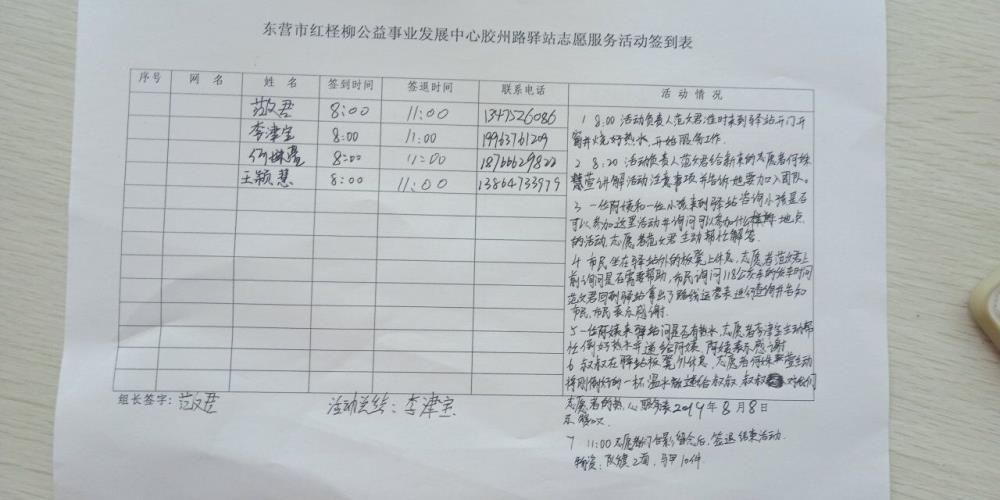 东营市红柽柳公益事业发展中心胶州路驿站志愿服务活动签到表
序号 网 名 姓 名 签到时间 签退时间 联系电话 活 动 情 况
范文君 8:00 11:00 1347526086
李津宝 8:00 11:00 19963761209
何姝莹 8:00 11:00 18766629822
王颖慧 8:00 11:00 13864733979
1 8:00 活动负责人范文君准时来到驿站开门开
窗并烧好热水,开始服务工作。
2 8:20 活动负责人范文君给新来的志愿者何姝
莹讲解活动注意事项并告诉她要加入团队。
3 一位阿姨和一位小孩来到驿站咨询小孩是否
可以参加这里活动并询问可以参加什么 地点
的活动,志愿者范文君主动帮忙解答.
4 市民坐在驿站外的板凳上休息,志愿者范文君上
前询问是否需要帮助,市民询问118公交车的发车时间
范文君回到驿站拿出了路线运营表进行查询并告知
市民,市民表示感谢.
5 一位阿姨来驿站问是否有热水,志愿者李津宝主动帮
忙倒好热水并递给阿姨,阿姨表示感谢
6 叔叔在驿站板凳外休息,志愿者何姝莹主动
将刚倒好的一杯温水递给叔叔,叔叔对我们
志愿者的热心服务表
示
组长签字:范文君 活动总结:李津宝 2019年8月8日
7 11:00 志愿者们合影留念后,签退结束活动.
物资:队旗2面,马甲10件.